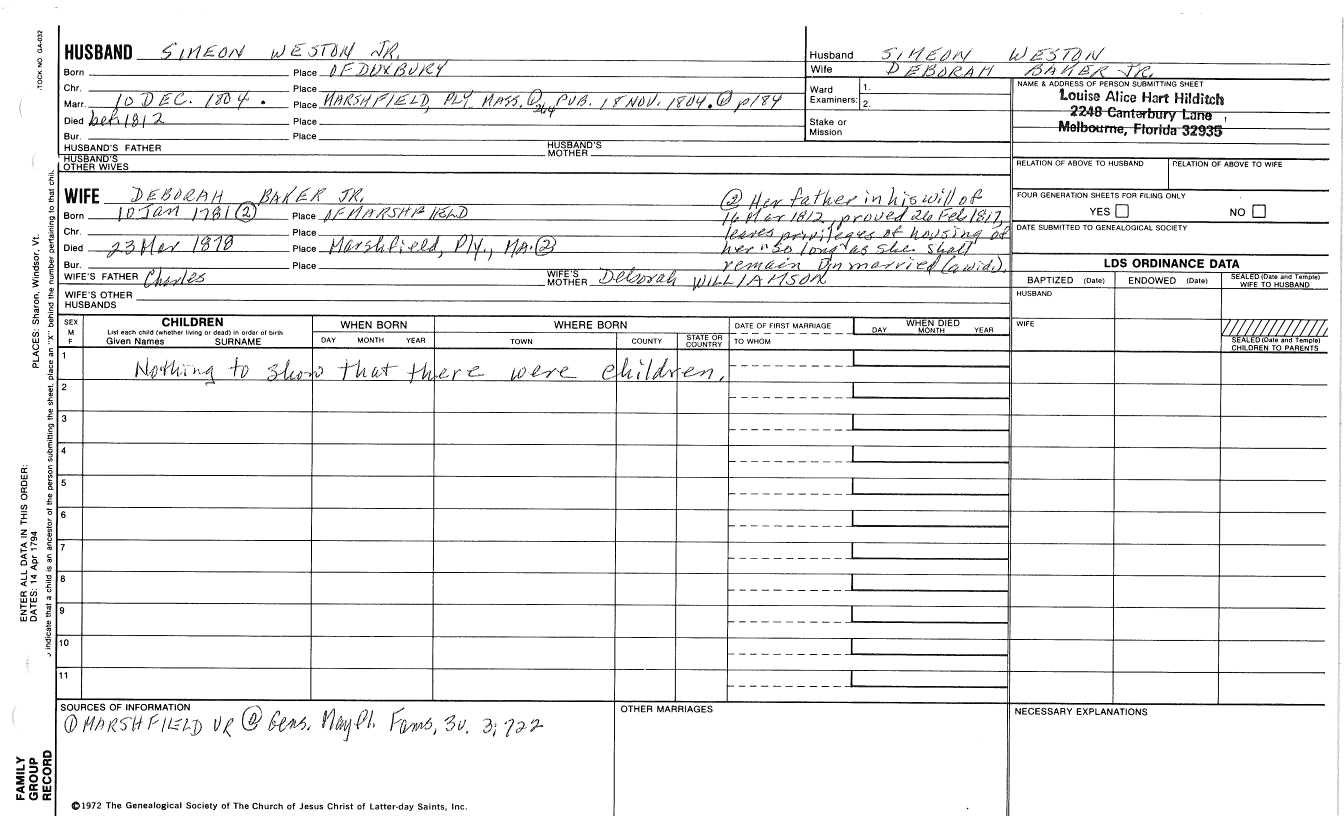 HUSBAND SIMEON WESTON JR.
Born Place OF DUXBURY
Chr. Place
Marr. 10 DEC. 1804. Place MARSHFIELD, PLY. MASS. ① 264 PUB. 18 NOV. 1804. ① p184
Died bef 1812 Place
Bur. Place
HUSBAND'S FATHER HUSBAND'S MOTHER
HUSBAND'S OTHER WIVES
Husband SIMEON WESTON
Wife DEBORAH BAKER JR.
Ward 1.
Examiners: 2.
Stake or Mission
NAME & ADDRESS OF PERSON SUBMITTING SHEET
Louise Alice Hart Hilditch
2248 Canterbury Lane
Melbourne, Florida 32935
RELATION OF ABOVE TO HUSBAND RELATION OF ABOVE TO WIFE
FOUR GENERATION SHEETS FOR FILING ONLY
YES NO
DATE SUBMITTED TO GENEALOGICAL SOCIETY
WIFE DEBORAH BAKER JR.
Born 10 Jan 1781 ② Place OF MARSHFIELD
Chr. Place
Died 23 Mar 1878 Place Marshfield, Ply., MA. ②
Bur. Place
② Her father in his will of
16 Mar 1812, proved 26 Feb 1817,
leaves privileges of housing of
her "so long" as she shall
remain unmarried (a wid.).
WIFE'S FATHER Charles WIFE'S MOTHER Deborah WILLIAMSON
WIFE'S OTHER HUSBANDS
LDS ORDINANCE DATA
BAPTIZED (Date) ENDOWED (Date) SEALED (Date and Temple) WIFE TO HUSBAND
HUSBAND
WIFE
SEALED (Date and Temple) CHILDREN TO PARENTS
SEX M F
CHILDREN
List each child (whether living or dead) in order of birth
Given Names SURNAME
WHEN BORN
DAY MONTH YEAR
WHERE BORN
TOWN COUNTY STATE OR COUNTRY
DATE OF FIRST MARRIAGE
TO WHOM
WHEN DIED
DAY MONTH YEAR
1 Nothing to show that there were children.
2
3
4
5
6
7
8
9
10
11
SOURCES OF INFORMATION
① MARSHFIELD VR ② Gens. Mayfl. Fams, 3v. 3:722
OTHER MARRIAGES
NECESSARY EXPLANATIONS
©1972 The Genealogical Society of The Church of Jesus Christ of Latter-day Saints, Inc.
FAMILY GROUP RECORD
ENTER ALL DATA IN THIS ORDER:
DATES: 14 Apr 1794
PLACES: Sharon, Windsor, Vt.
indicate that a child is an ancestor of the person submitting the sheet, place an "X" behind the number pertaining to that
TOCK NO. GA-032